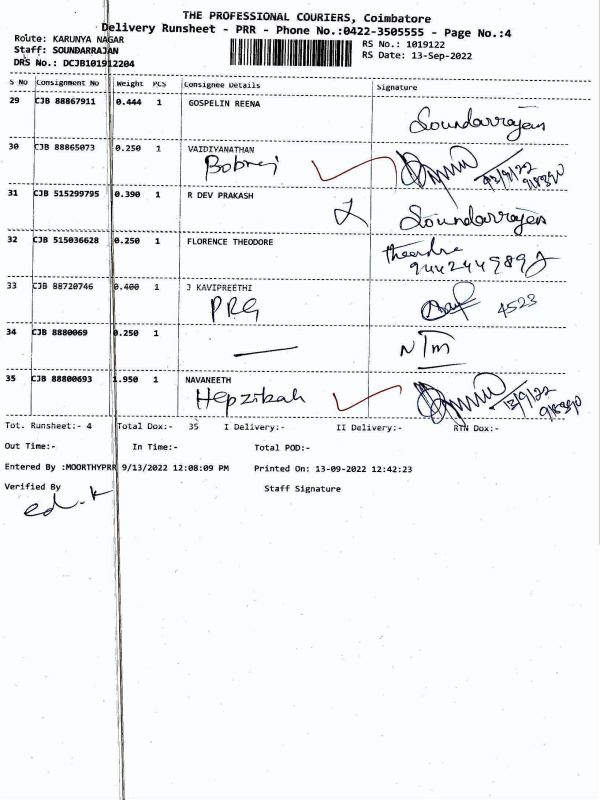 THE PROFESSIONAL COURIERS, Coimbatore
Delivery Runsheet - PRR - Phone No.:0422-3505555 - Page No.:4
Route: KARUNYA NAGAR
Staff: SOUNDARRAJAN
DRS No.: DCJB101912204
RS No.: 1019122
RS Date: 13-Sep-2022
S No Consignment No Weight PCS Consignee Details Signature
29 CJB 88867911 0.444 1 GOSPELIN REENA
Soundarrajan
30 CJB 88865073 0.250 1 VAIDIYANATHAN
Bobraj
31 CJB 515299795 0.390 1 R DEV PRAKASH
Soundarrajan
32 CJB 515036628 0.250 1 FLORENCE THEODORE
33 CJB 88720746 0.400 1 J KAVIPREETHI
PRG 4523
34 CJB 8880069 0.250 1
NTM
35 CJB 88800693 1.950 1 NAVANEETH
Hepzibah 13/9/22
Tot. Runsheet:- 4 Total Dox:- 35 I Delivery:- II Delivery:- RTN Dox:-
Out Time:- In Time:- Total POD:-
Entered By :MOORTHYPRR 9/13/2022 12:08:09 PM Printed On: 13-09-2022 12:42:23
Verified By Staff Signature